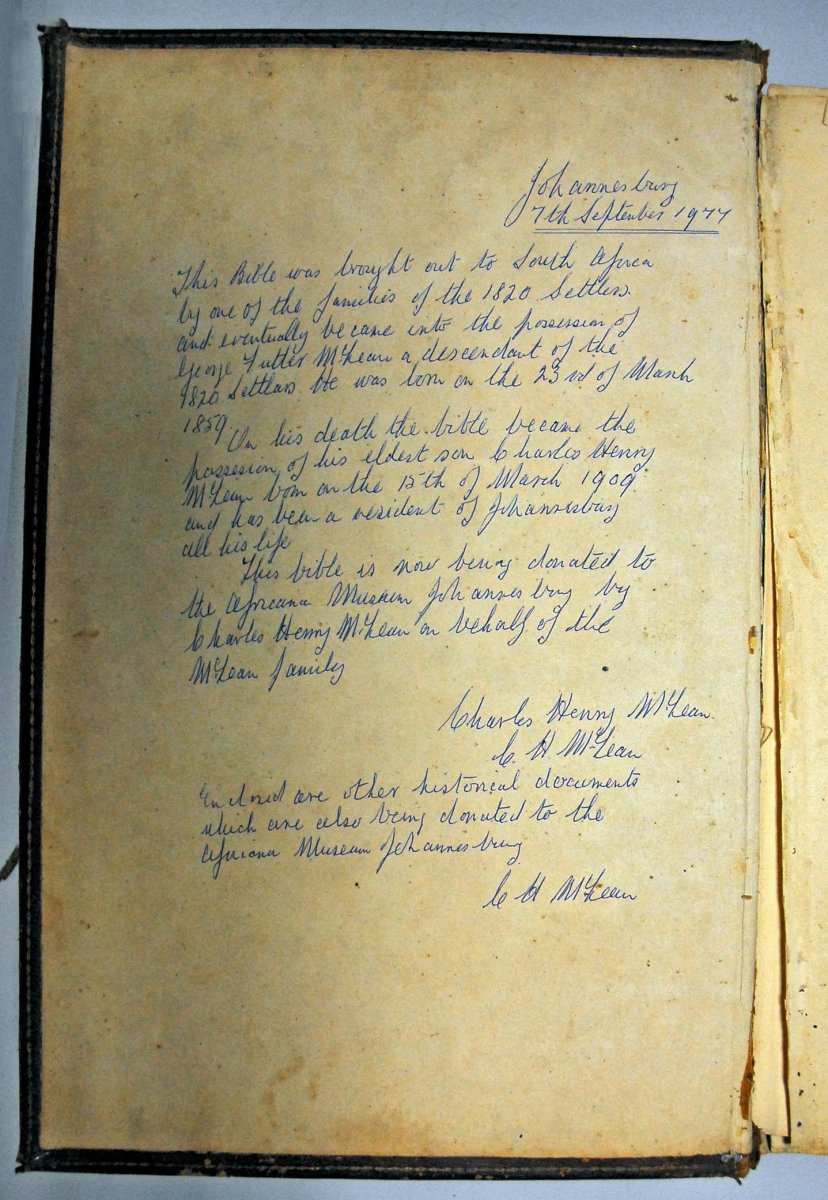 Johannesburg
7th September 1977
This Bible was brought out to South Africa
by one of the families of the 1820 Settlers.
and eventually became into the possession of
George Futter McLean a descendant of the
1820 Settlers. He was born on the 23rd of March
1859.
On his death the bible became the
possesion of his eldest son Charles Henry
McLean born on the 15th of March 1909
and has been a resident of Johannesburg
all his life
This bible is now being donated to
the Africana Museum Johannesburg by
Charles Henry McLean on behalf of the
McLean family
Charles Henry McLean.
C. H McLean
Enclosed are other historical documents
which are also being donated to the
Africana Museum Johannesburg
C H McLean